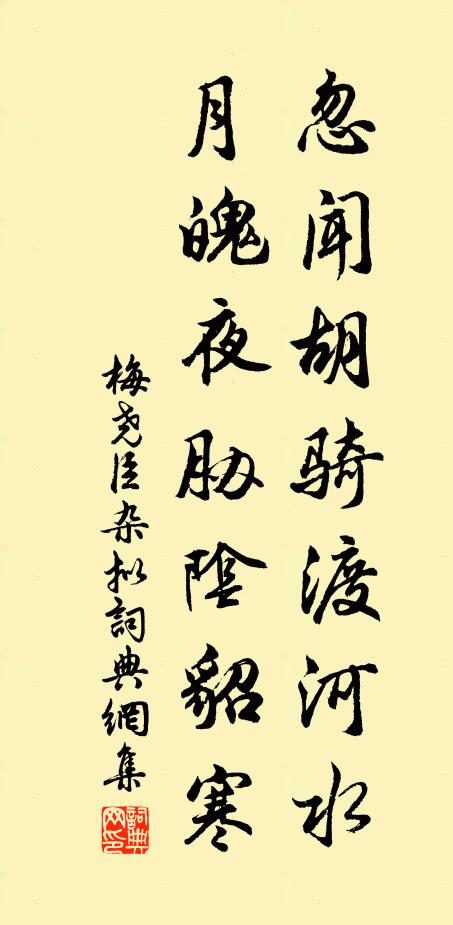 忽闻胡骑渡河水
月魄夜胁阴貂寒
梅尧臣杂拟詞典網集
詞典
网印